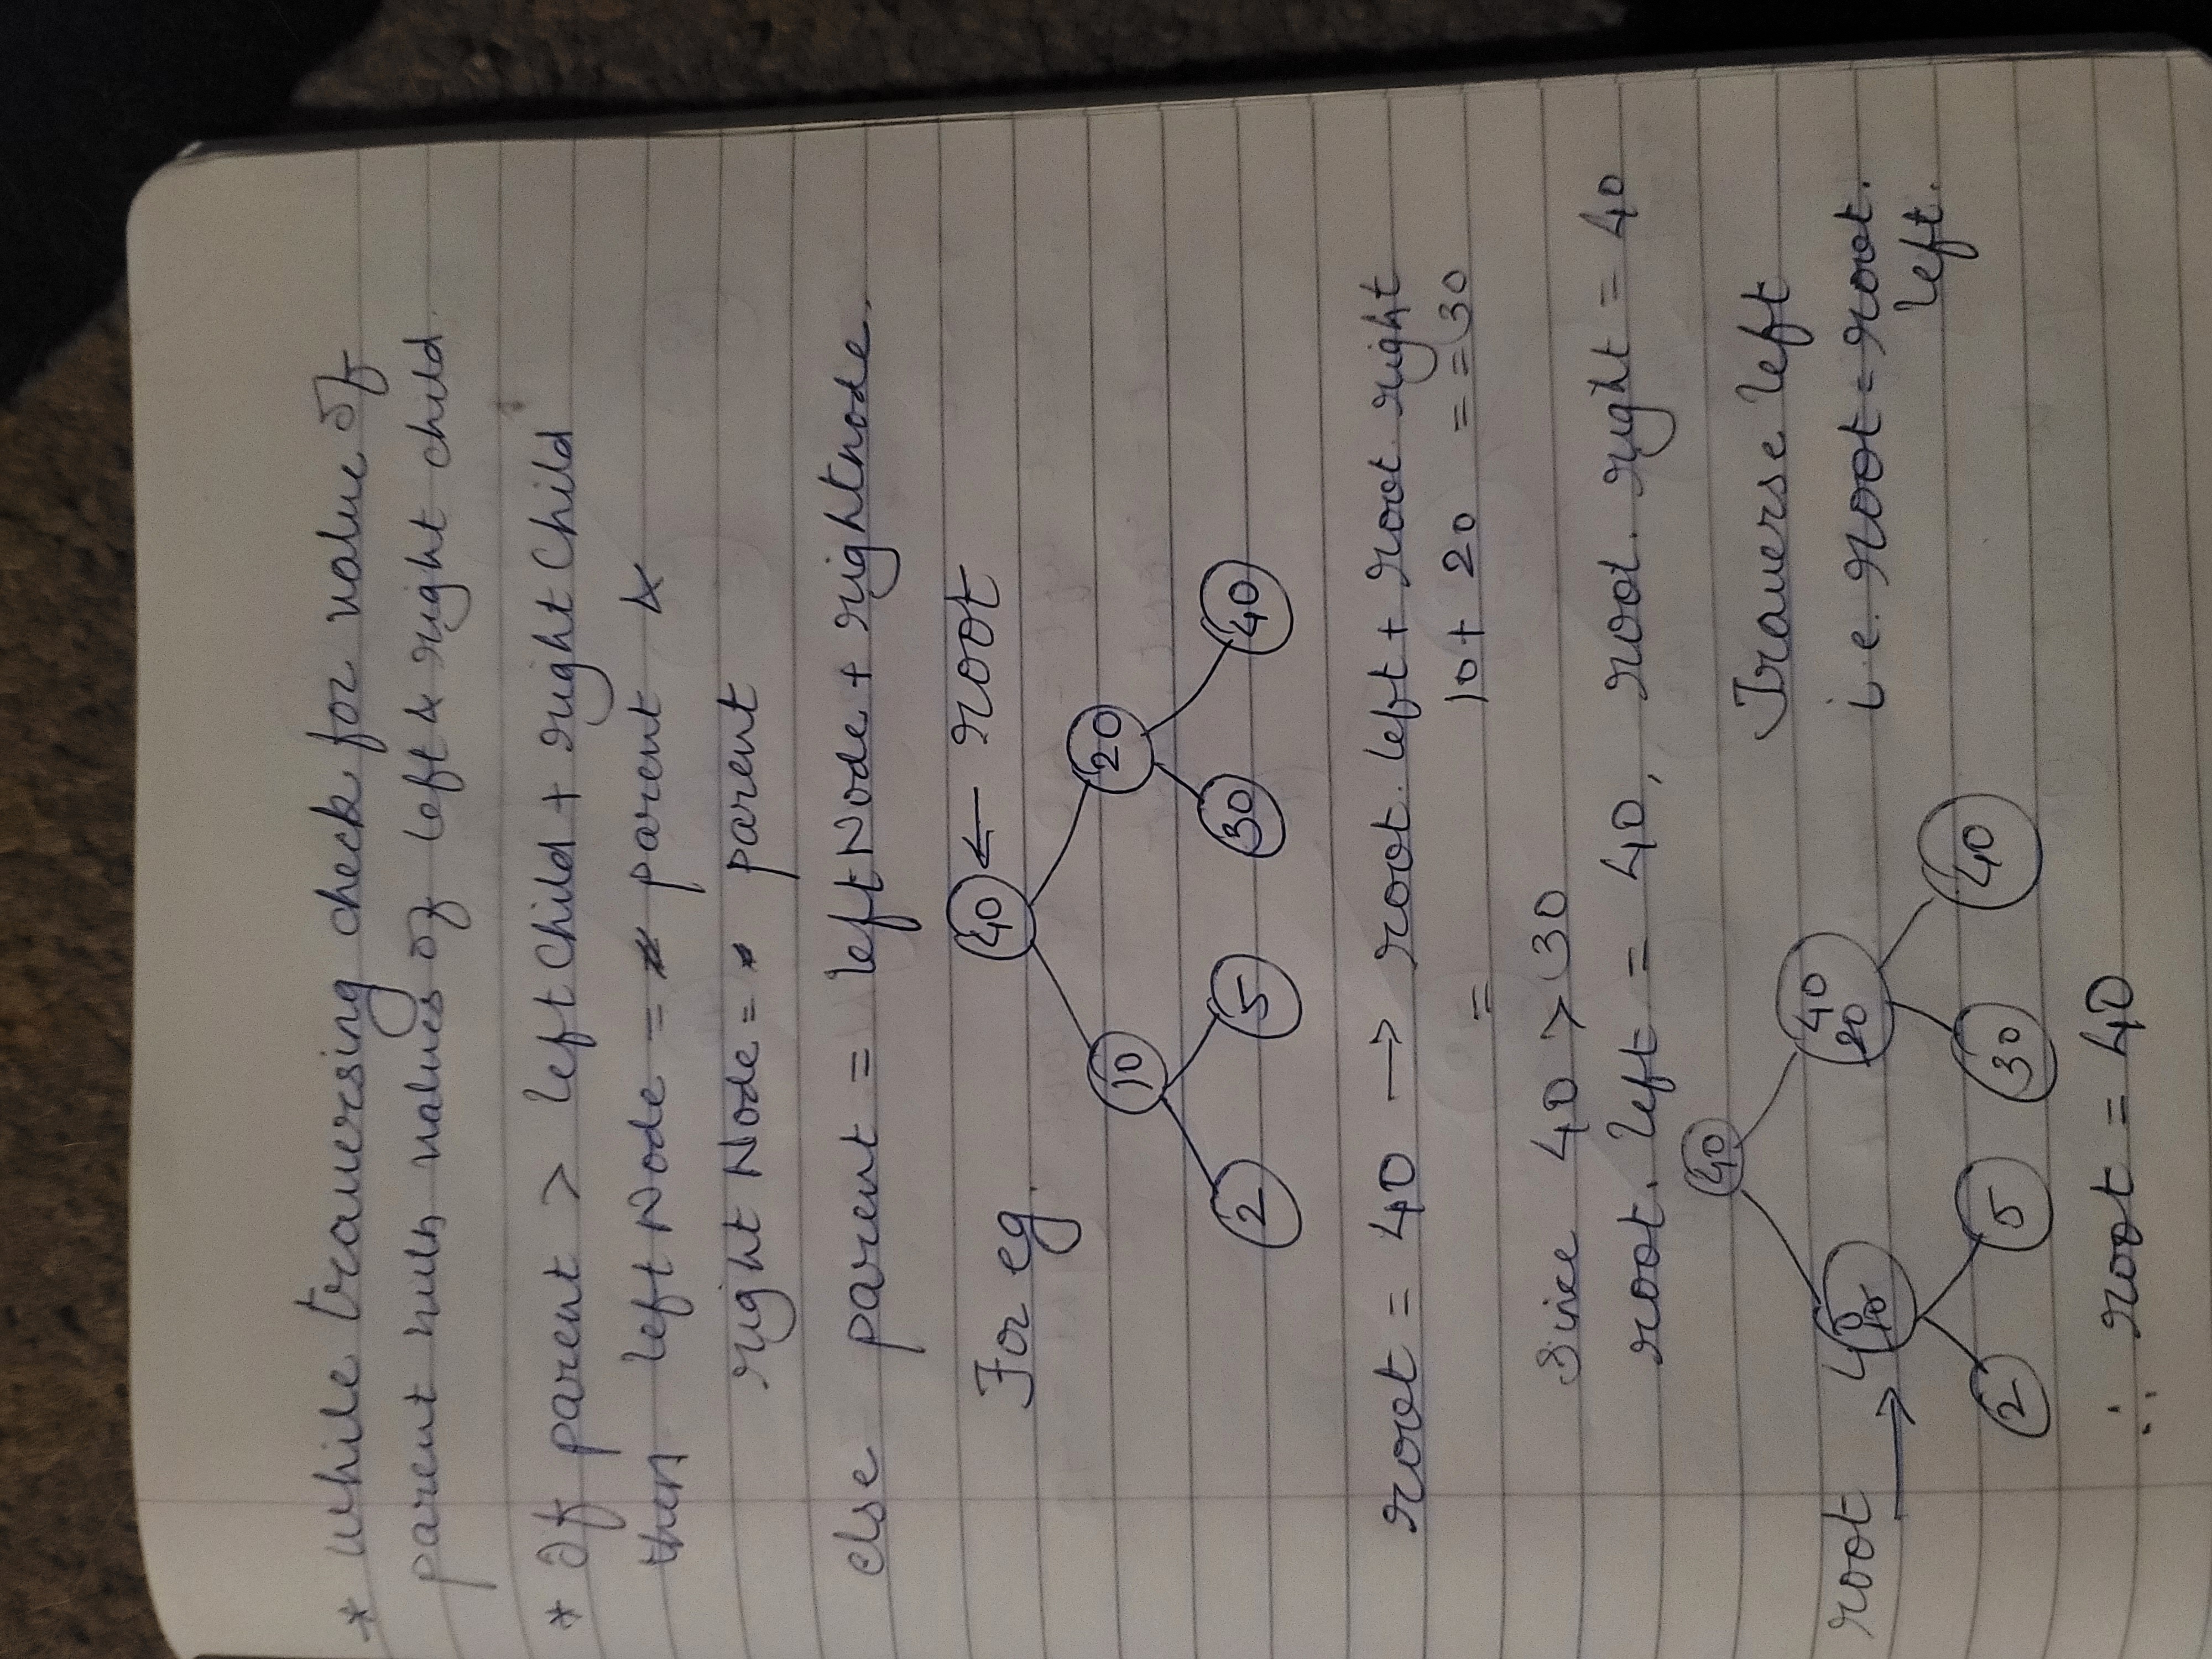 * while traversing check for value of
parent with values of left & right child.
* If parent > left Child + right Child
then left Node = parent &
right Node = parent
else parent = left Node + rightnode.
For eg.
40 ← root
10 20
2 5 30 40
root = 40 → root. left + root. right
= 10 + 20 = = 30
Since 40 > 30
root. left = 40, root. right = 40
40
Traverse left
root → 40 10 40 20
i.e. root = root.
left.
2 5 30 40
∴ root = 40